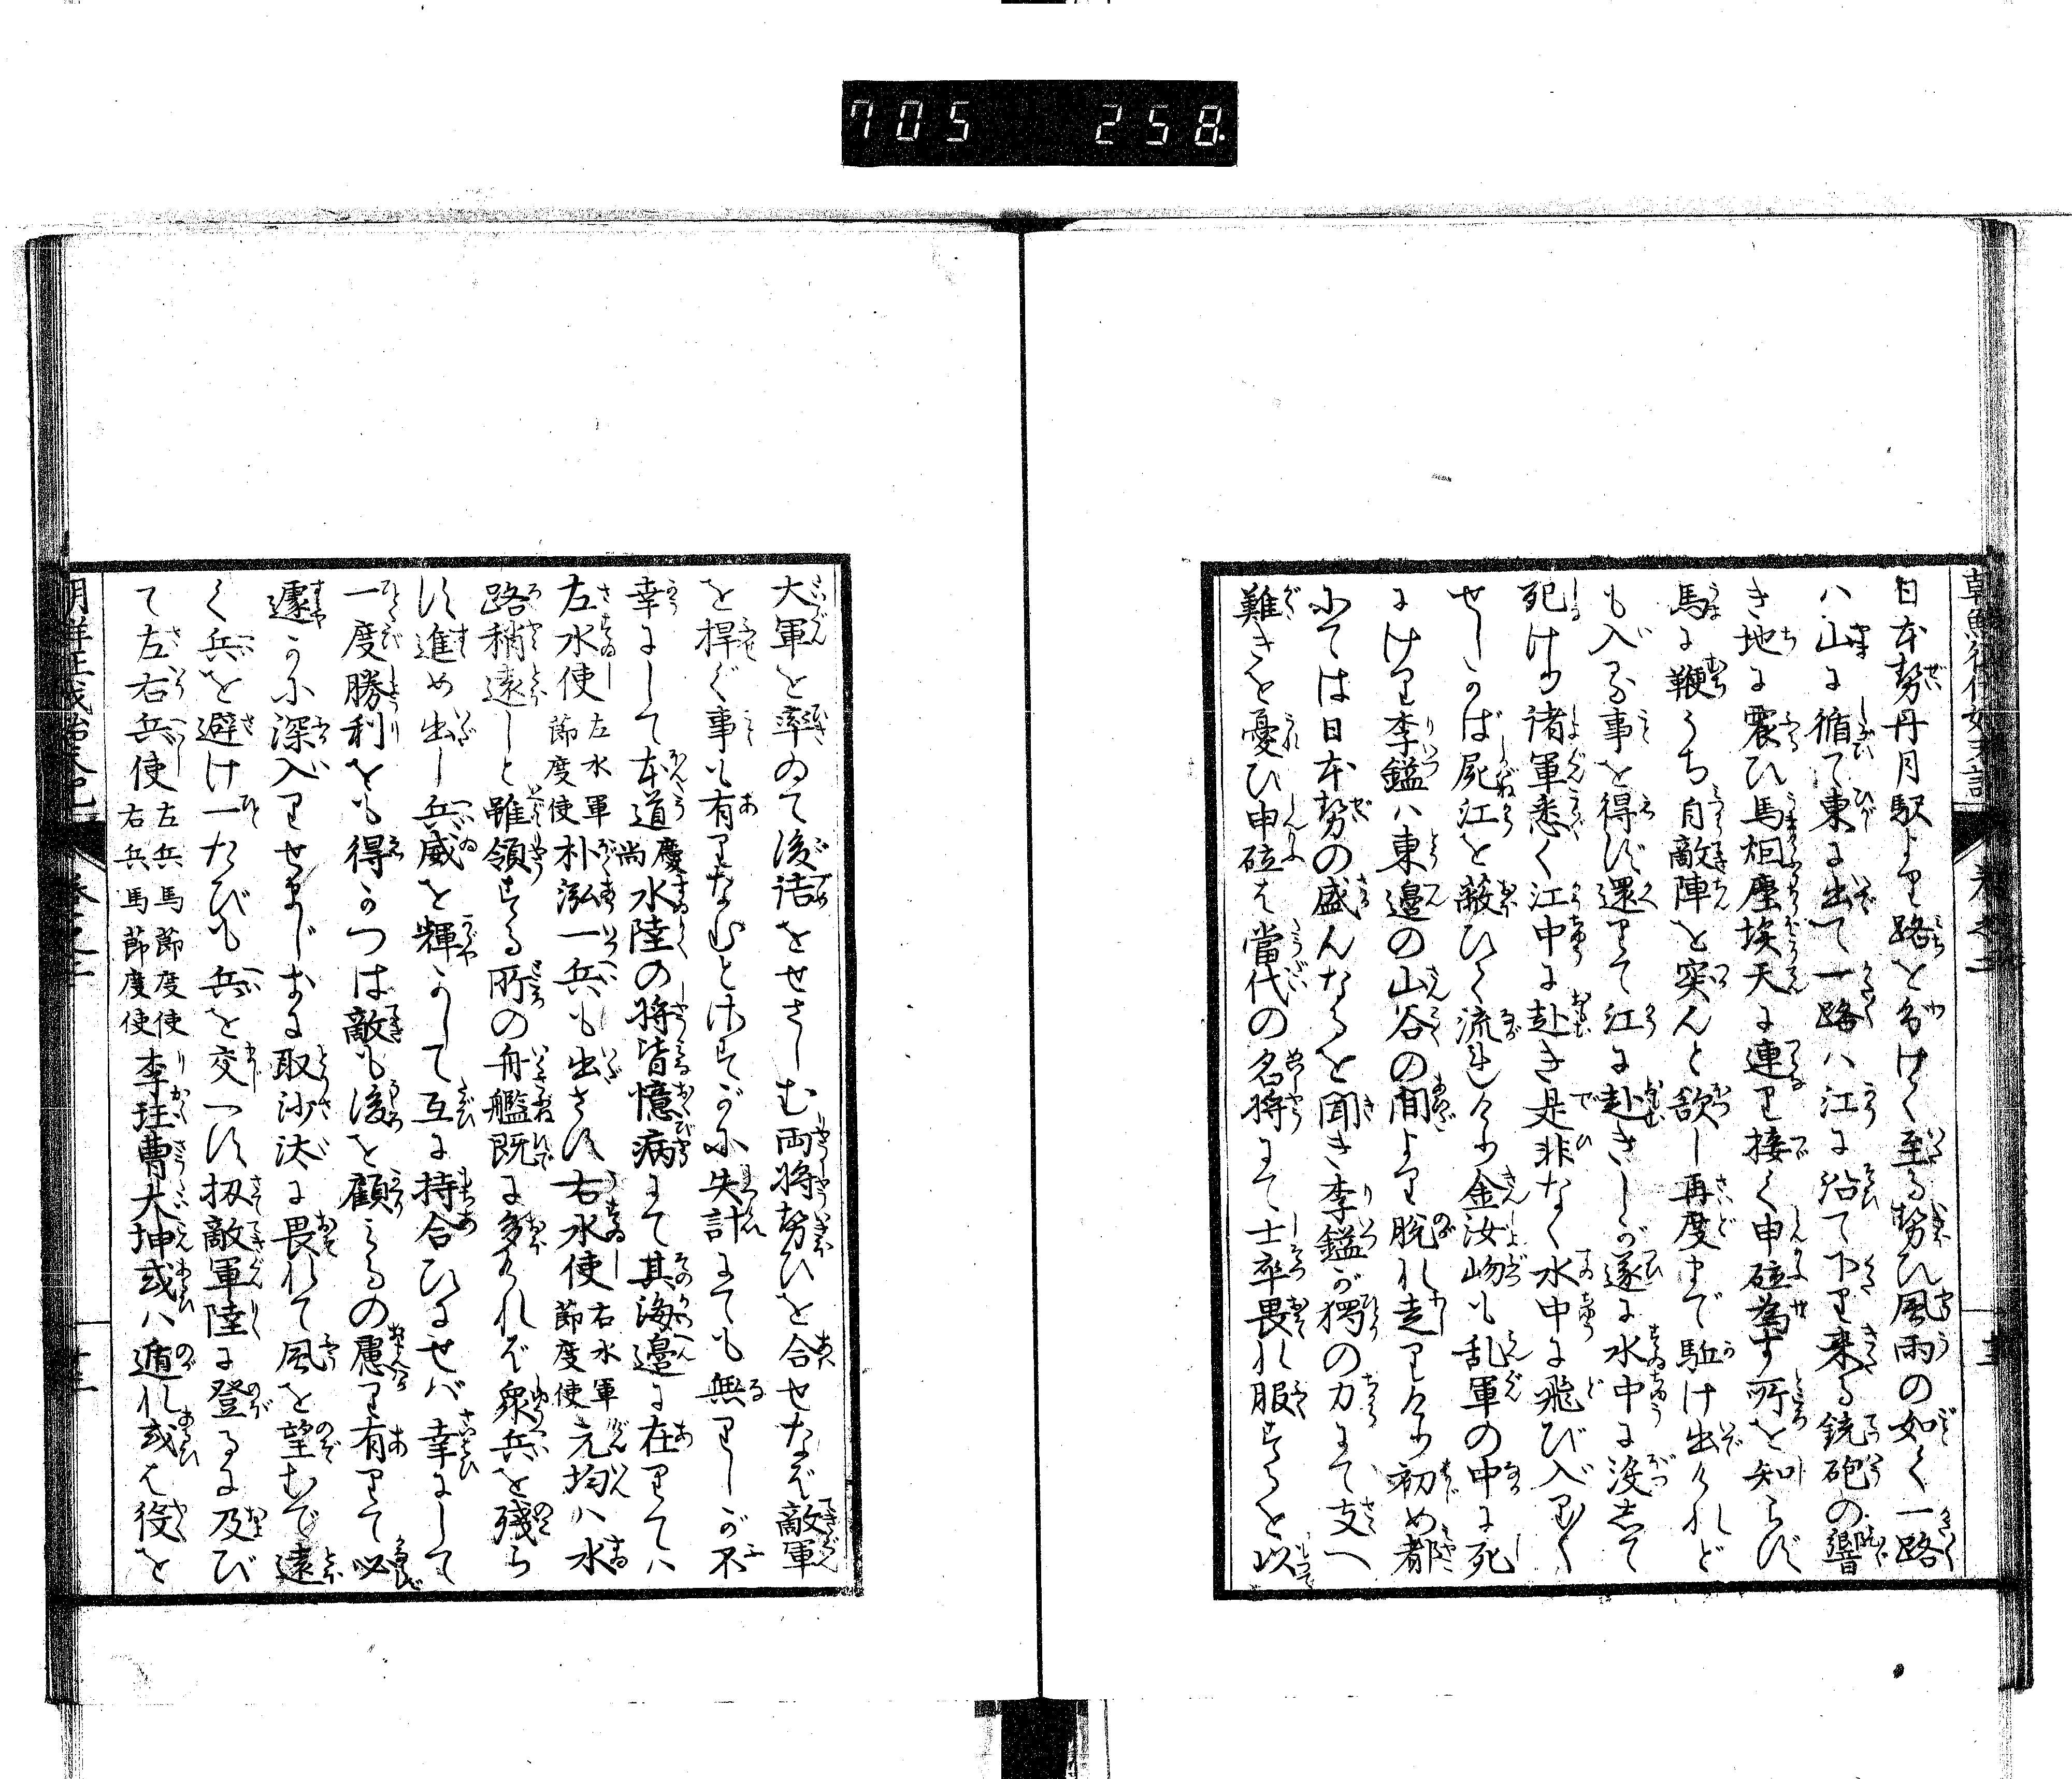 705 258.
日本勢丹月駅より路を分けく至る勢ひ風雨の如く一路
ハ山に循て東に出て一路ハ江に沿て下り来る銃砲の響
き地に震ひ馬烟塵埃天に連り接く申砬為す所を知らず
馬に鞭うち自敵陣を突んと欲し再度まで駈け出けれど
も入る事を得ず還りて江に赴きしが遂に水中に没して
死けり諸軍悉く江中に赴き是非なく水中に飛び入りく
せしかば屍江を蔽ひく流れけり金汝岉も乱軍の中に死
にけり李鎰ハ東邊の山谷の間より脱れ走りけり初め都
にては日本勢の盛んなるを聞き李鎰が獨の力にて支へ
難きを憂ひ申砬は當代の名将にて士卒畏れ服するを以
大軍を率ゐて後詰をせさしむ両将勢ひを合せなば敵軍
を捍ぐ事も有りなむとはするが失計にても無りしが不
幸にして本道慶尚水陸の将皆憶病にて其海邊に在りてハ
左水使左水軍節度使朴泓一兵も出さず右水使右水軍節度使元均ハ水
路稍遠しと雖領する所の舟艦既に多ければ衆兵を残ら
ず進め出し兵威を輝かして互に持合ひるせバ幸にして
一度勝利をも得かつは敵も後を顧みるの慮り有りて必
遽かに深入りせまじきに取沙汰に畏れて風を望むで遠
く兵を避け一たびも兵を交へず扨敵軍陸に登るに及び
て左右兵使左兵馬節度使右兵馬節度使李珏曹大坤或ハ遁れ或は役を